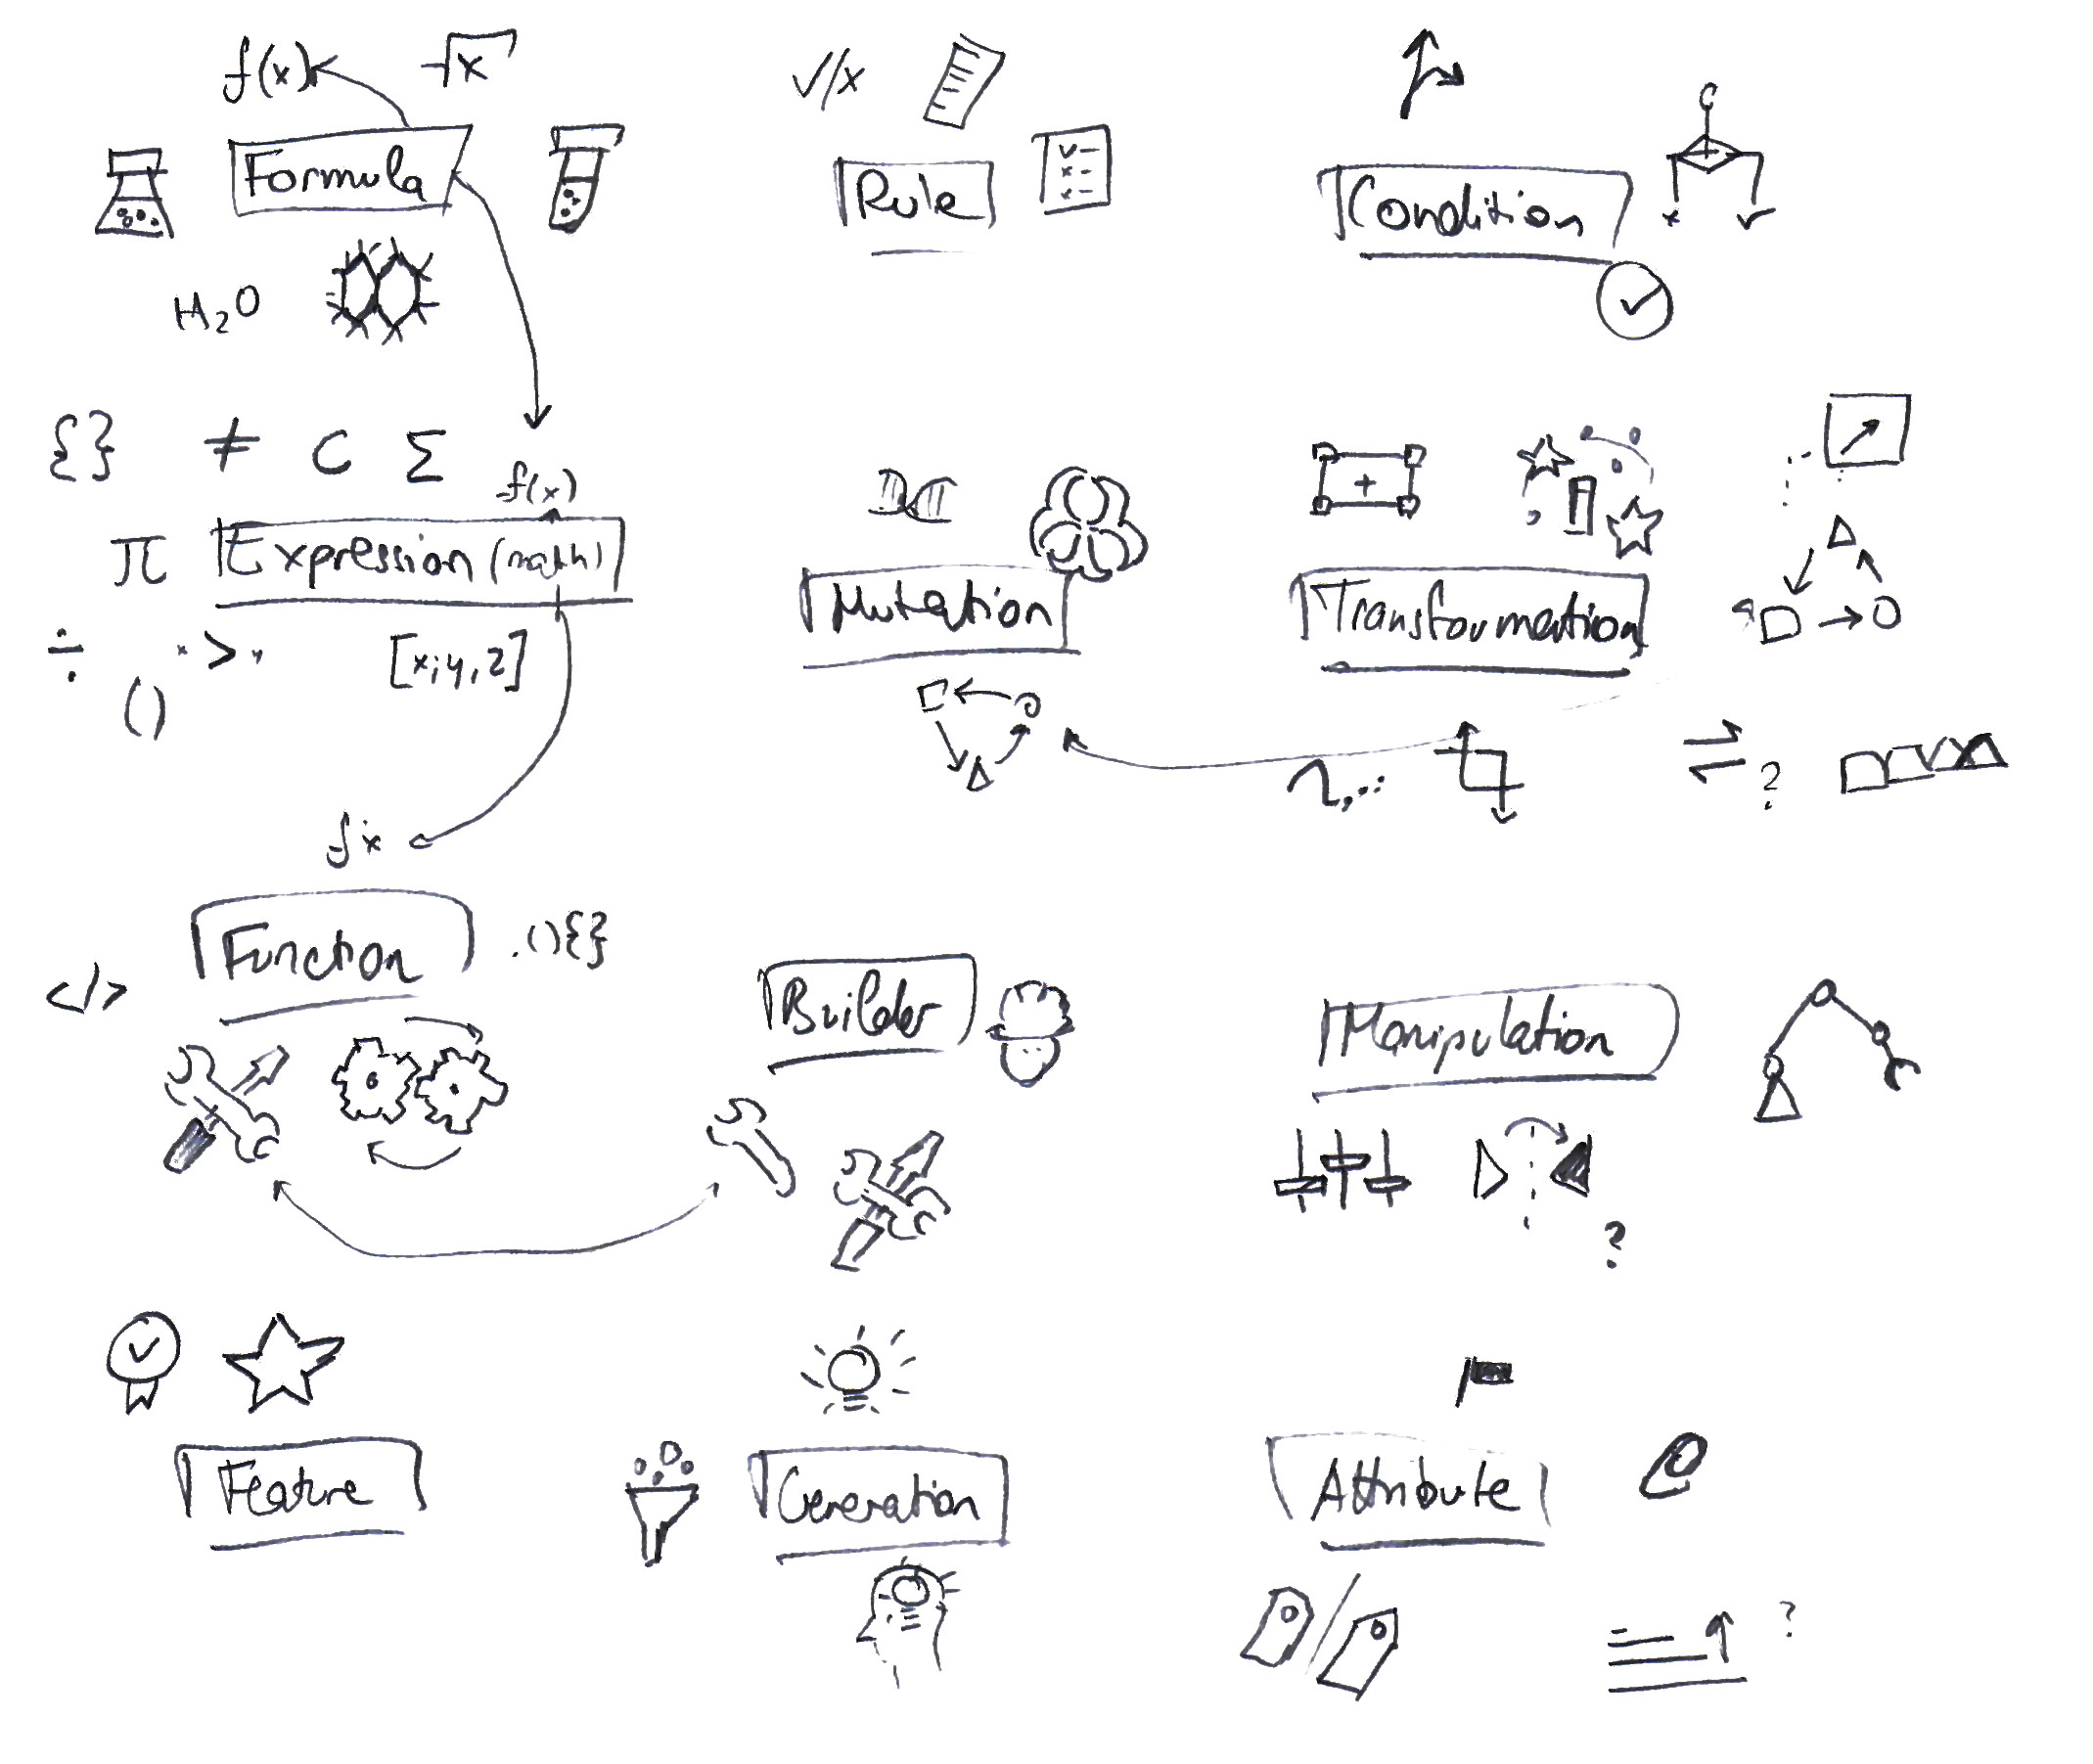 f(x) √x
Formula
H₂O
✓/x
Rule
✓-
x-
x-
C
Condition
x ✓
{} ≠ C Σ
f(x)
π Expression (math)
÷ () "x > y" [x,y,z]
Mutation
Transformation
?
fx
Function
.(){}
</>
Builder
Manipulation
?
Feature
Generation
Attribute
?